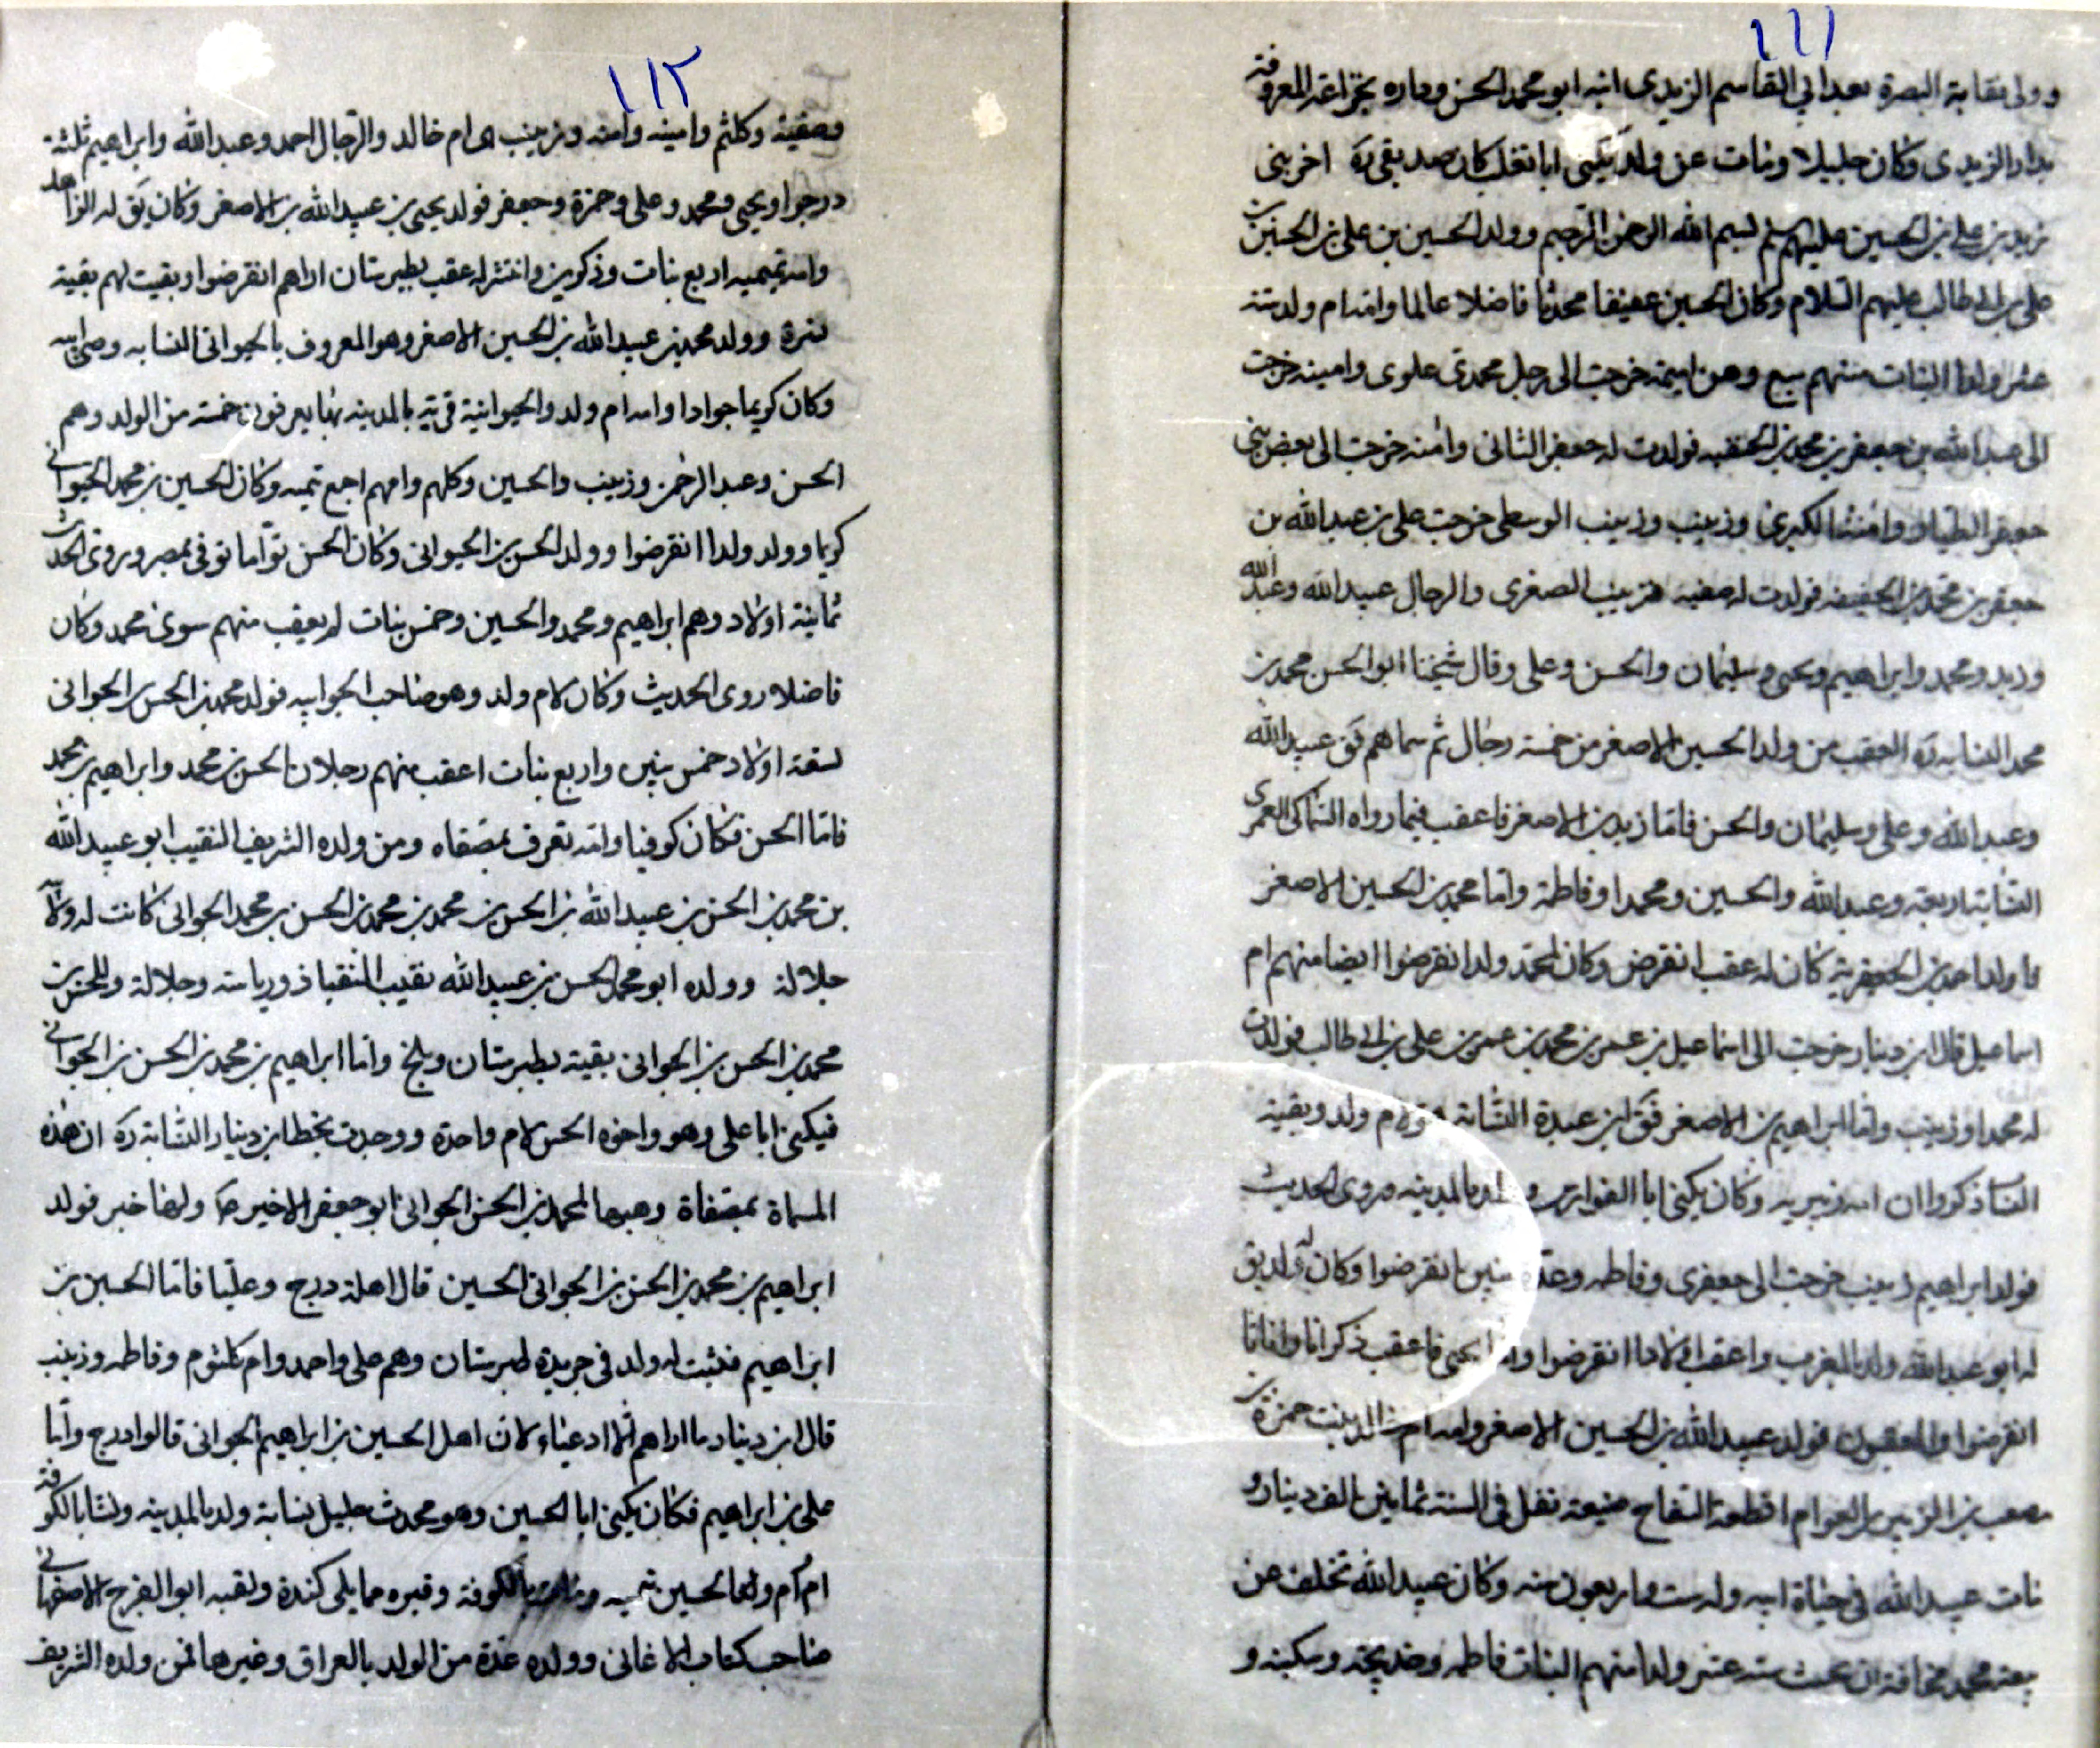 ١١١
وولى نقابة البصرة بعد ابي القاسم الزيدى ابنه ابو محمد الحسن وداره بخزاعة المعروفة
بدار الزيدى وكان جليلا ومات عن ولد يكنى ابا تغلب كان صديقى ره اخر بنى
زيد بن على بن الحسين عليهم السلم بسم الله الرحمن الرحيم وولد الحسين بن على بن الحسين بن
على بن ابى طالب عليهم السلام وكان الحسين عفيفا محدثا فاضلا عالما وامه ام ولد ستة
عشر ولدا البنات منهم سبع وهن اميمة خرجت الى رجل محمدى علوى وامينه خرجت
الى عبد الله بن جعفر بن محمد بن الحنفيه فولدت له جعفر الثانى وامنه خرجت الى بعض بنى
جعفر الطيار وامنة الكبرى وزينب وزينب الوسطى خرجت على بن عبد الله بن
جعفر بن محمد بن الحنفيه فولدت له صفيه وزينب الصغرى والرجال عبيد الله وعبد الله
وزيد ومحمد وابراهيم ويحيى وسليمان والحسن وعلى وقال شيخنا ابو الحسن محمد بن
محمد النسابه ره العقب من ولد الحسين الاصغر من خمسة رجال ثم سماهم فق عبيد الله
وعبد الله وعلى وسليمان والحسن فاما زيد بن الاصغر فاعقب فيما رواه السماكى العمرى
النسابة اربعة وعبد الله والحسين ومحمدا وفاطمة واما محمد بن الحسين الاصغر
فاولد احمد بن الجعفرية كان له عقب انقرض وكان لمحمد ولد انقرضوا ايضا منهم ام
اسماعيل قال ابن دينار خرجت الى اسماعيل بن عمر بن محمد بن عمر بن على بن ابى طالب فولدت
له محمدا وزينب واما ابراهيم بن الاصغر فق ابن عبدة النسابة هو لام ولد وبقية
النساب ذكروا ان امه زبيرية وكان يكنى ابا الفوارس ولد بالمدينه وروى الحديث
فولد ابراهيم زينب خرجت الى جعفرى وفاطمه وعدة بنين انقرضوا وكان له ولد يق
له ابو عبد الله ولد بالمغرب واعقب اولادا انقرضوا واما يحيى فاعقب ذكرانا واناثا
انقرضوا والمعقبون فولد عبيد الله بن الحسين الاصغر وامه ام خالد بنت حمزة بن
مصعب بن الزبير بن العوام اقطعه السفاح ضيعة تغل فى السنة ثمانين الف دينار و
مات عبيد الله فى حياة ابيه وله ست واربعون سنه وكان عبيد الله تخلف عن
بيعة محمد مخافة ان ستة عشر ولدا منهم البنات فاطمه وخديجه وسكينه و
١١٢
وصفية وكلثم وامينه وامنه وزينب ام خالد والرجال احمد وعبد الله وابراهيم ثلثة
درجوا ويحيى ومحمد وعلى وحمزة وجعفر فولد يحيى بن عبيد الله بن الاصغر وكان يق له الزاهد
وامه تميميه اربع بنات وذكرين وانتشر له عقب بطبرستان اراهم انقرضوا وبقيت لهم بقية
نزرة وولد محمد بن عبيد الله بن الحسين الاصغر وهو المعروف بالجوانى النسابه وصى ابيه
وكان كريما جوادا وامه ام ولد والجوانية قرية بالمدينه بها يعرفون خمسة من الولد وهم
الحسن وعبد الرحمن وزينب والحسين وكلهم وامهم اجمع تيميه وكان الحسين بن محمد الجوانى
كريما وولد ولدا انقرضوا وولد الحسن بن الجوانى وكان الحسن توأما توفى بمصر وروى الحديث
ثمانية اولاد وهم ابراهيم ومحمد والحسين وخمس بنات لم يعقب منهم سوى محمد وكان
فاضلا روى الحديث وكان لام ولد وهو صاحب الجوانيه فولد محمد بن الحسن بن الجوانى
تسعة اولاد خمس بنين واربع بنات اعقب منهم رجلان الحسن بن محمد وابراهيم بن محمد
فاما الحسن فكان كوفيا وامه تعرف بمصفاه ومن ولده الشريف النقيب ابو عبيد الله
بن محمد بن الحسن بن عبيد الله بن الحسن بن محمد بن محمد بن الحسن بن محمد الجوانى كانت له ولاية
جلالة وولده ابو محمد الحسن بن عبيد الله نقيب النقبا ذو رياسته وجلالة وللحسن بن
محمد بن الحسن بن الجوانى بقية بطبرستان وبلخ واما ابراهيم بن محمد بن الحسن بن الجوانى
فيكنى ابا على وهو واخوه الحسن لام واحدة ووجدت بخط ابن دينار النسابة ره ان هذه
المسماة بمصفاة وهبها لمحمد بن الحسن الجوانى ابو جعفر الاخير ع ولها خبر فولد
ابراهيم بن محمد بن الحسن بن الجوانى الحسين قال اهله درج وعليا فاما الحسين بن
ابراهيم فثبت له ولد فى جريدة طبرستان وهم على واحمد وام كلثوم وفاطمه وزينب
قال ابن دينار ما اراهم الا ادعياء لان اهل الحسين بن ابراهيم الجوانى قالوا درج واما
على بن ابراهيم فكان يكنى ابا الحسين وهو محدث جليل نسابة ولد بالمدينه ونشا بالكوفة
ام ام ولد الحسين تميه ومات بالكوفة وقبره مما يلى كندة ولقبه ابو الفرج الاصفهانى
صاحب كتاب الاغانى وولده عدة من الولد بالعراق وغيرها فمن ولده الشريف